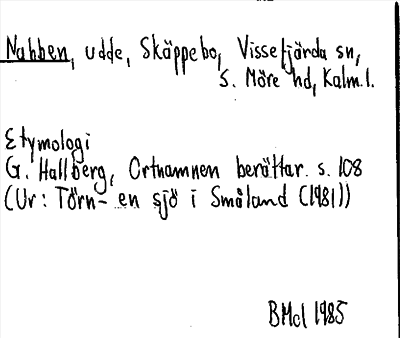 Nabben, udde, Skäppebo, Vissefjärda sn,
S. Möre hd, Kalm.l.
Etymologi
G. Hallberg, Ortnamnen berättar. s. 108
(Ur: Törn- en sjö i Småland (1981))
BMcl 1985